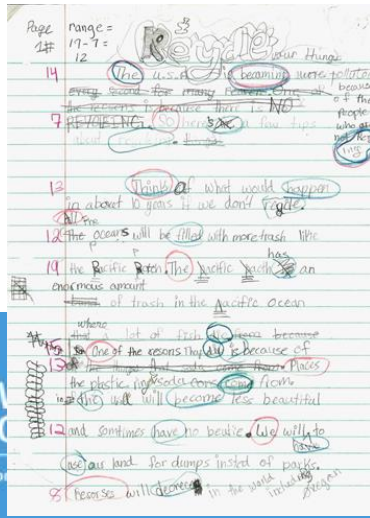 Page 1# range = 17-7= 12 Recycle your things
14 The U.S.A is becoming more polluted
every second for many reasons. One of
the reasons is because there is NO
because of the people who are not Recycling
7 REYCLING. So here's a few tips
about
13 Think of what would happen
in about 10 years if we don't
All the
12 The oceans will be filled with more trash like
19 the Pacific Patch. The Pacific Pacth has an
enormous amount
of trash in the Pacific Ocean
where
a lot of fish because
15 One of the resons They die is because of
13 Places
the plastic rings soda come from
The will become less beautiful
12 and somtimes have no . We will to
have
use our land for dumps insted of parks.
8 Resorses will decrece in the world including Oregon